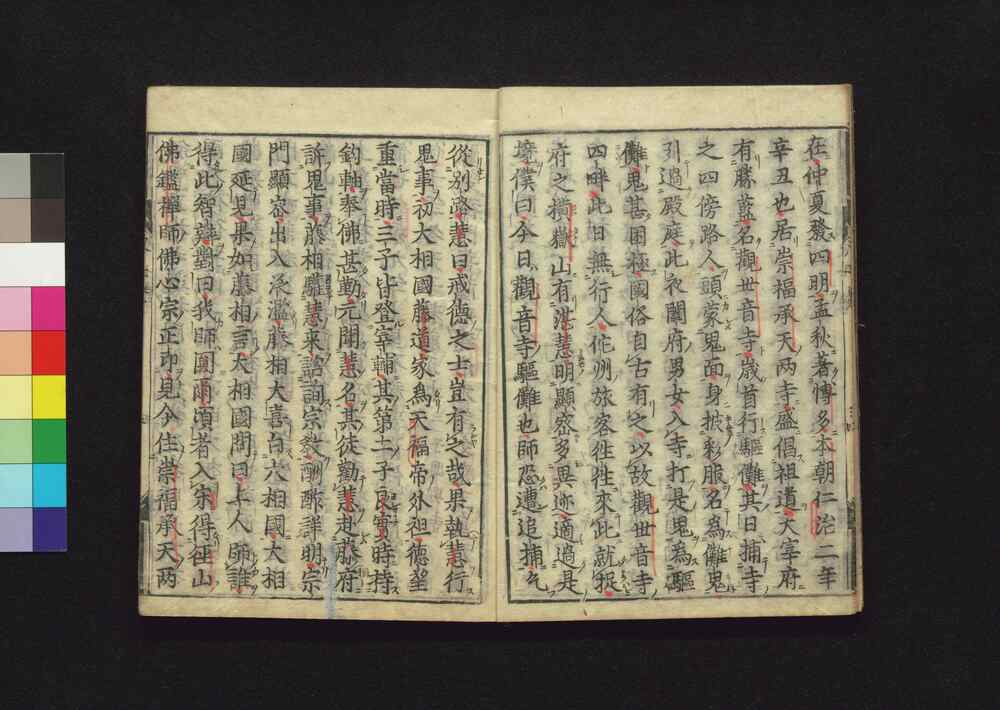 在仲夏發四明孟秋著博多本朝仁治二年
辛丑也居崇福承天两寺盛倡祖道大宰府
有勝藍名觀世音寺歳首行驅儺其日捕寺
之四傍路人頭蒙鬼面身披彩服名為儺鬼
引過殿庭此夜闔府男女入寺打是鬼為驅
儺鬼甚困極國俗自古有之以故觀世音寺
四畔此日無行人佗州旅客徃徃來此就捉
府之横嶽山有湛慧明顯密多異迹適過是
境僕曰今日觀音寺驅儺也師恐遭追捕乞
從別路慧曰戒德之士豈有之哉果執慧行
鬼事初大相國藤道家為天福帝外祖德望
重當時三子皆登宰輔其第二子良實時持
鈞軸奉佛甚勤元聞慧名其徒勸慧赴藤府
訴鬼事藤相聽慧來詣詢宗教酬酢詳明宗
門顯密出入泛濫藤相大喜白大相國大相
國延見果如藤相言大相國問曰上人師誰
得此智辯對曰我師圓爾頃者入宋得徑山
佛鑑禪師佛心宗正印見今住崇福承天两